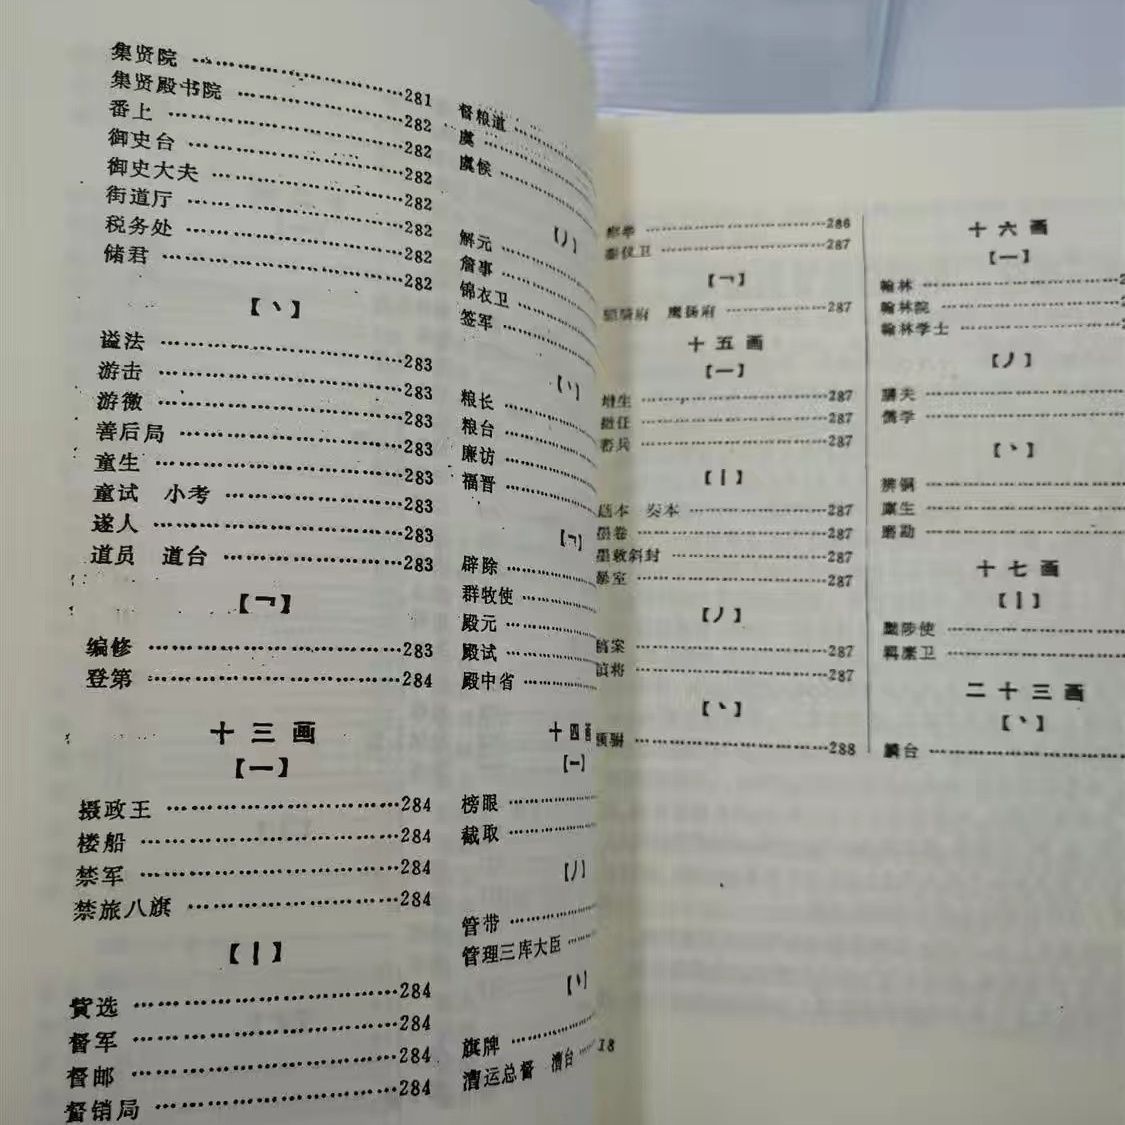 集贤院 …… 281
集贤殿书院 …… 282
番上 …… 282
御史台 …… 282
御史大夫 …… 282
街道厅 …… 282
税务处 …… 282
储君 …… 282
【丶】
谥法 …… 283
游击 …… 283
游徼 …… 283
善后局 …… 283
童生 …… 283
童试 小考 …… 283
遂人 …… 283
道员 道台 …… 283
【乛】
编修 …… 283
登第 …… 284
十三画
【一】
摄政王 …… 284
楼船 …… 284
禁军 …… 284
禁旅八旗 …… 284
【丨】
赀选 …… 284
督军 …… 284
督邮 …… 284
督销局 …… 284
督粮道 ……
虞 ……
虞候 ……
【丿】
解元 ……
詹事 ……
锦衣卫 ……
签军 ……
【丶】
粮长 ……
粮台 ……
廉访 ……
福晋 ……
【乛】
辟除 ……
群牧使 ……
殿元 ……
殿试 ……
殿中省 ……
十四画
【一】
榜眼 ……
截取 ……
【丿】
管带 ……
管理三库大臣 ……
【丶】
旗牌 ……
漕运总督 漕台 ……
18
…… 286
銮仪卫 …… 287
【乛】
骠骑府 鹰扬府 …… 287
十五画
【一】
增生 …… 287
…… 287
…… 287
【丨】
题本 奏本 …… 287
墨卷 …… 287
墨敕斜封 …… 287
暴室 …… 287
【丿】
稿案 …… 287
镇将 …… 287
【丶】
…… 288
十六画
【一】
翰林 ……
翰林院 ……
翰林学士 ……
【丿】
膳夫 ……
儒学 ……
【丶】
辨铜 ……
廪生 ……
磨勘 ……
十七画
【丨】
黜陟使 ……
羁縻卫 ……
二十三画
【丶】
麟台 ……